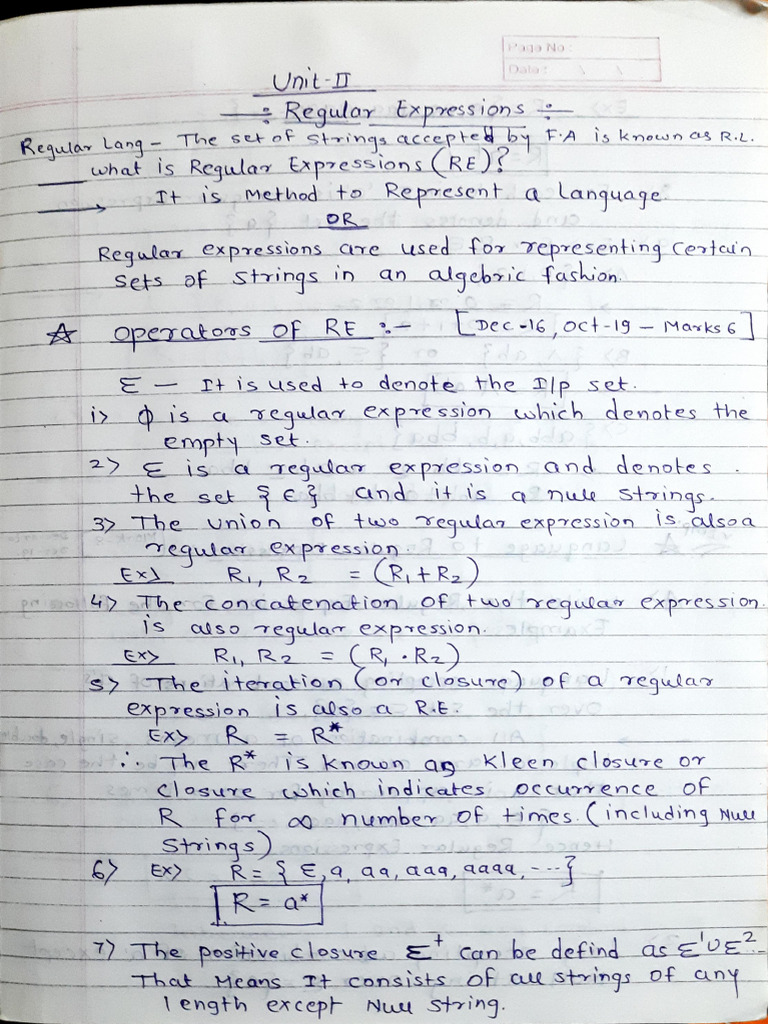 Page No :
Date : / /
Unit-II
÷ Regular Expressions ÷
Regular Lang – The set of strings accepted by F.A is known as R.L.
what is Regular Expressions (RE)?
→ It is Method to Represent a Language.
OR
Regular expressions are used for representing certain
sets of strings in an algebric fashion.
☆ operators of RE :- [Dec-16, Oct-19 – Marks 6]
Σ — It is used to denote the I/p set.
i> ϕ is a regular expression which denotes the
empty set.
2> Σ is a regular expression and denotes
the set {∈} and it is a null strings.
3> The union of two regular expression is also a
regular expression
Ex> R₁, R₂ = (R₁+R₂)
4> The concatenation of two regular expression
is also regular expression.
Ex> R₁, R₂ = (R₁ . R₂)
5> The iteration (or closure) of a regular
expression is also a R.E.
Ex> R = R*
∴ The R* is known as kleen closure or
closure which indicates occurrence of
R for ∞ number of times. (including Null
Strings)
6> Ex> R = { Σ, a, aa, aaa, aaaa, ---}
R = a*
7> The positive closure Σ⁺ can be defind as Σ¹∪Σ²--
That Means It consists of all strings of any
length except Null String.